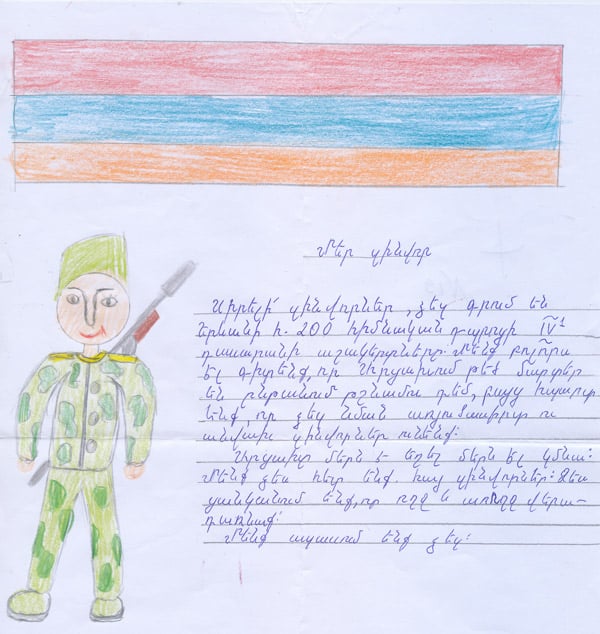 Մեր զինվոր
Սիրելի՛ զինվորներ, ձեզ գրում են
Երևանի հ. 200 հիմնական դպրոցի IV¹
դասարանի աշակերտները: Մենք բոլորս
էլ գիտենք, որ Արցախում թեժ մարտեր
են ընթանում թշնամու դեմ, բայց հպարտ
ենք, որ ձեզ նման առյուծասիրտ ու
անվախ զինվորներ ունենք:
Արցախը մերն է եղել մերն էլ կմնա:
Մենք ձեզ հետ ենք. հայ զինվորներ: Ձեզ
ցանկանում ենք, որ ողջ և առողջ վերա-
դառնաք:
Մենք սպասում ենք ձեզ: